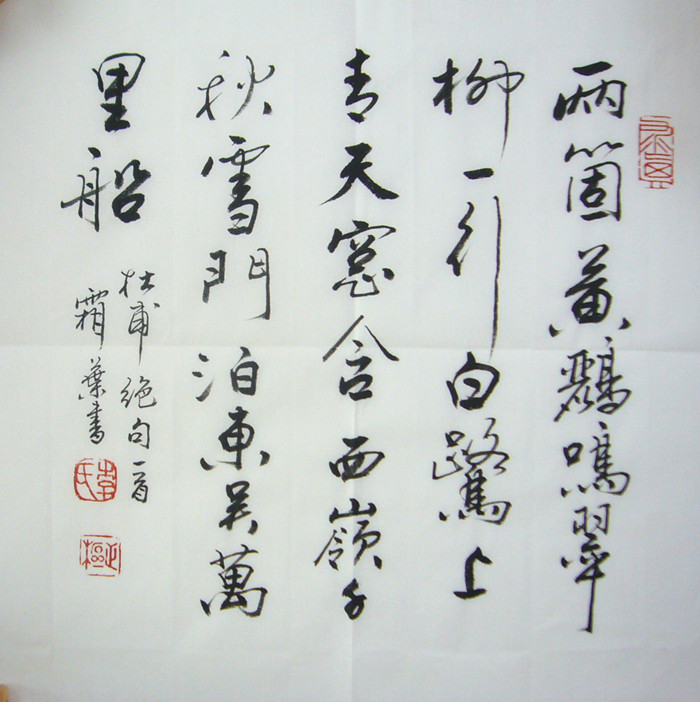 兩箇黃鸝鳴翠
柳一行白鷺上
青天窓含西嶺千
秋雪門泊東吳萬
里船
杜甫絕句一首
霜葉書
李氏